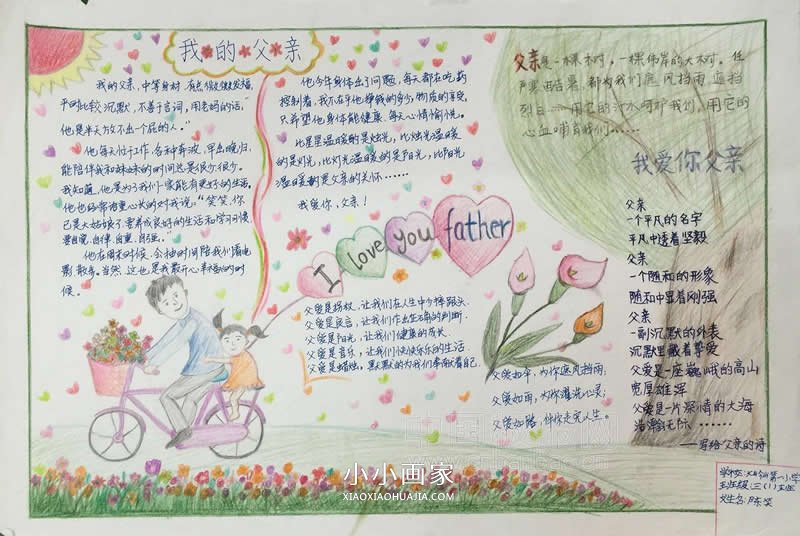 我的父亲
我的父亲,中等身材,有点微微发福,
平时比较沉默,不善于言词,用老妈的话,
他是半天放不出一个屁的人。"
他每天忙于工作,各种奔波,早出晚归,
能陪伴我和妹妹的时间还是很少很少。
我知道,他是为了我们一家能有更好的生活。
他也经常语重心长的对我说:"笑笑,你
已是大姑娘了,要养成良好的生活和学习习惯
要自觉,自律,自重,自强。"
他在周末时候,会抽时间陪我们看电
影,散步。当然,这也是我最开心幸福的时
候。
他今年身体出了问题,每天都在吃药
控制着,我不在乎他挣钱的多少,物质的享受,
只希望他身体能健康,每天心情愉悦。
比星星温暖的是烛光,比烛光温暖
的是灯光,比灯光温暖的是阳光,比阳光
温暖的是父亲的关怀……
我爱你,父亲!
I love you father
父爱是拐杖,让我们在人生中少摔跟头.
父爱是良言,让我们作出正确的判断.
父爱是阳光,让我们健康的成长.
父爱是音乐,让我们快快乐乐的生活.
父爱是蜡烛,默默的为我们奉献着自己.
父爱如伞,为你遮风挡雨;
父爱如雨,为你濯洗心灵;
父爱如路,伴你走完人生。
父亲是一棵木对,一棵伟岸的大木对。任
严寒酷暑,都为我们庇风挡雨,遮挡
烈日……用它的汁水呵护我们,用它的
心血哺育我们……
我爱你父亲
父亲
一个平凡的名字
平凡中透着坚毅
父亲
一个随和的形象
随和中显着刚强
父亲
一副沉默的外表
沉默里藏着挚爱
父爱是一座巍峨的高山
宽厚雄浑
父爱是一片深情的大海
浩瀚无际……
——写给父亲的诗
第一小学
班级:三(1)班
姓名:陈笑
小小画家
XIAOXIAOHUAJIA.COM